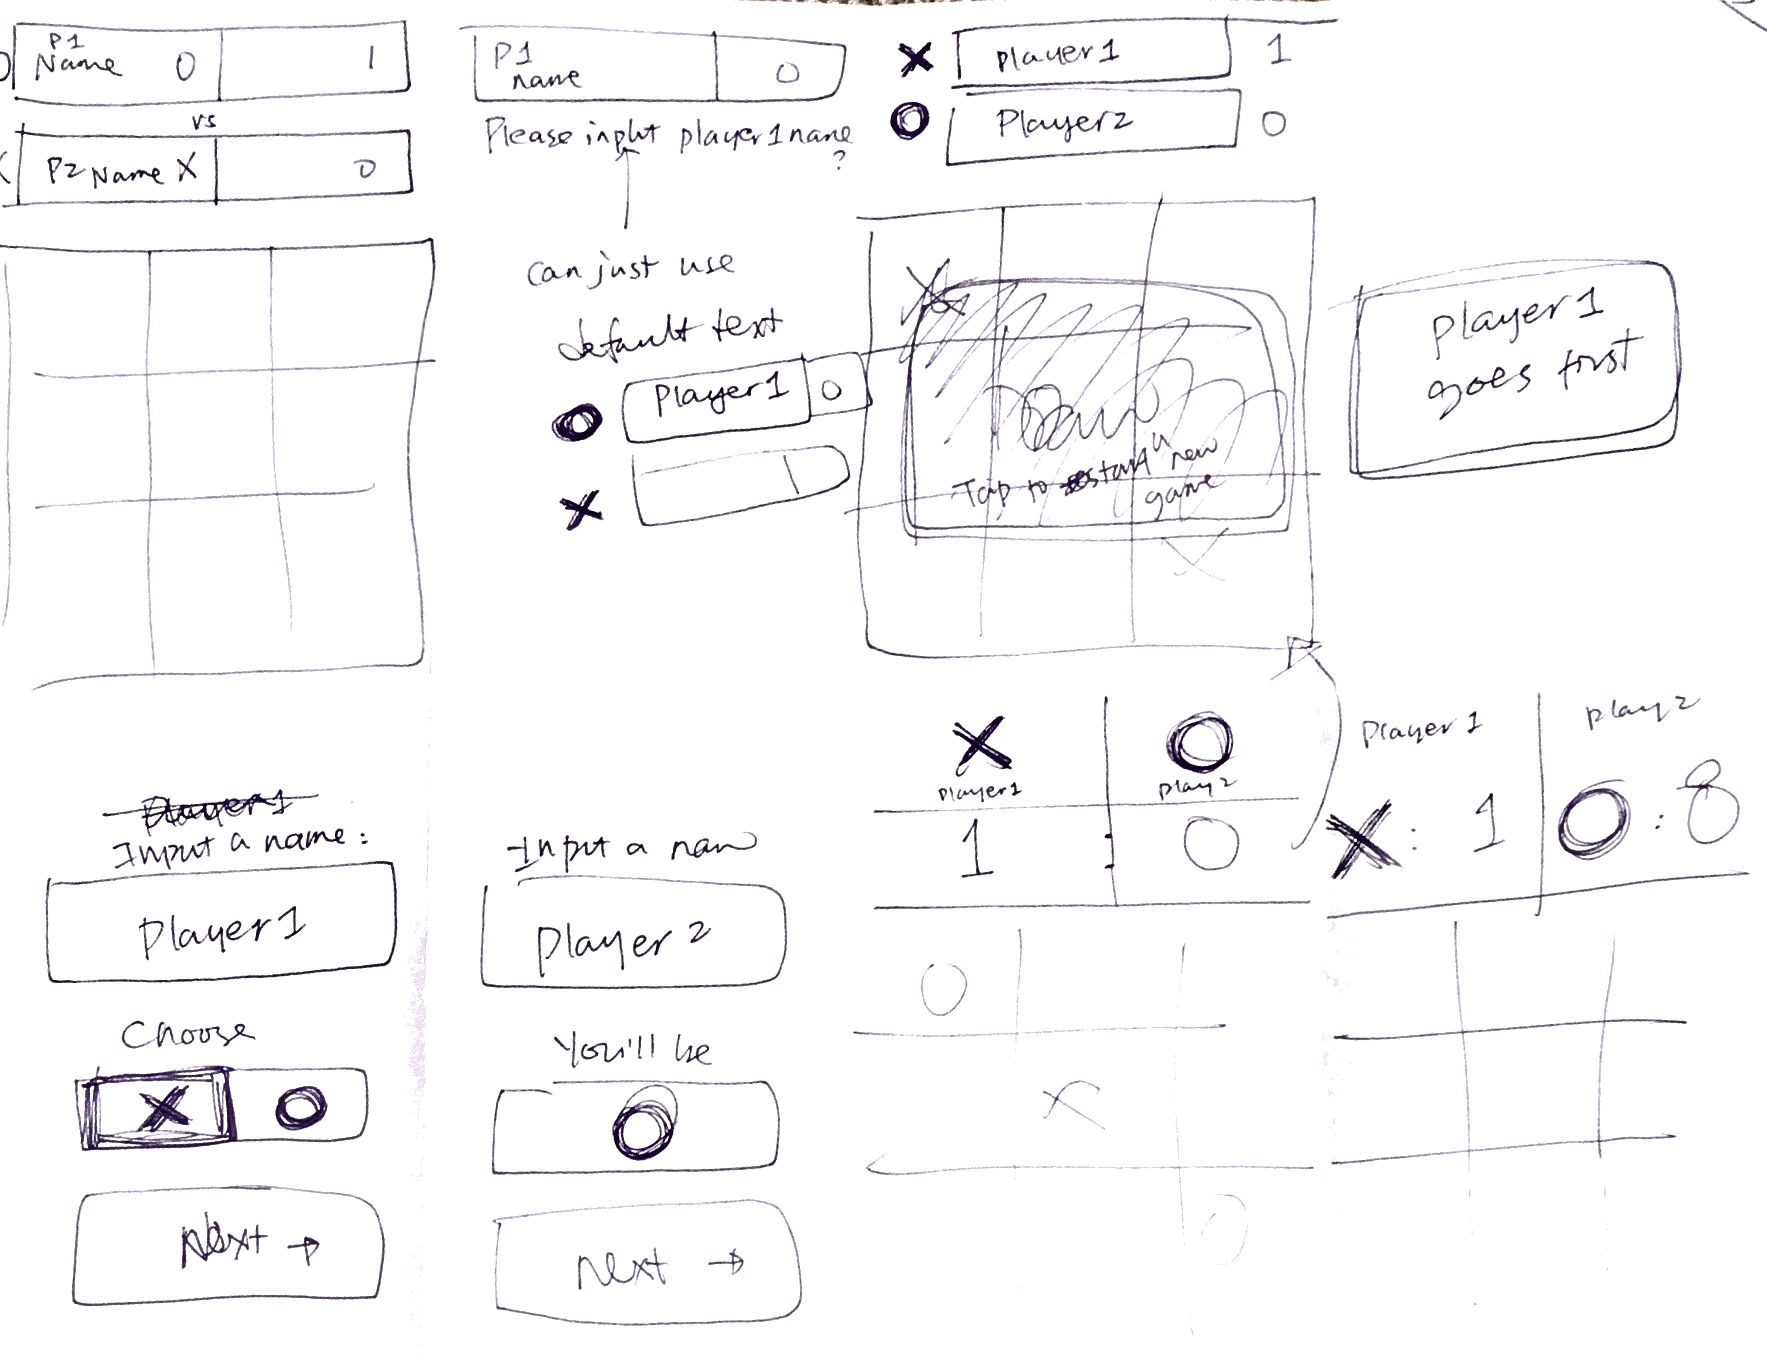 P1
Name O 1
vs
P2 Name X 0
P1
name 0
Please input player1 name
?
can just use
default text
O Player1 0
X
X player1 1
O Player2 0
X
Draw
Tap to start a new
game
player1
goes first
Player1
Input a name:
player1
Choose
X O
Next →
Input a nam
player 2
You'll be
O
next →
X O
player1 play2
1 : 0
O
X
O
player1 play2
X : 1 O : 8